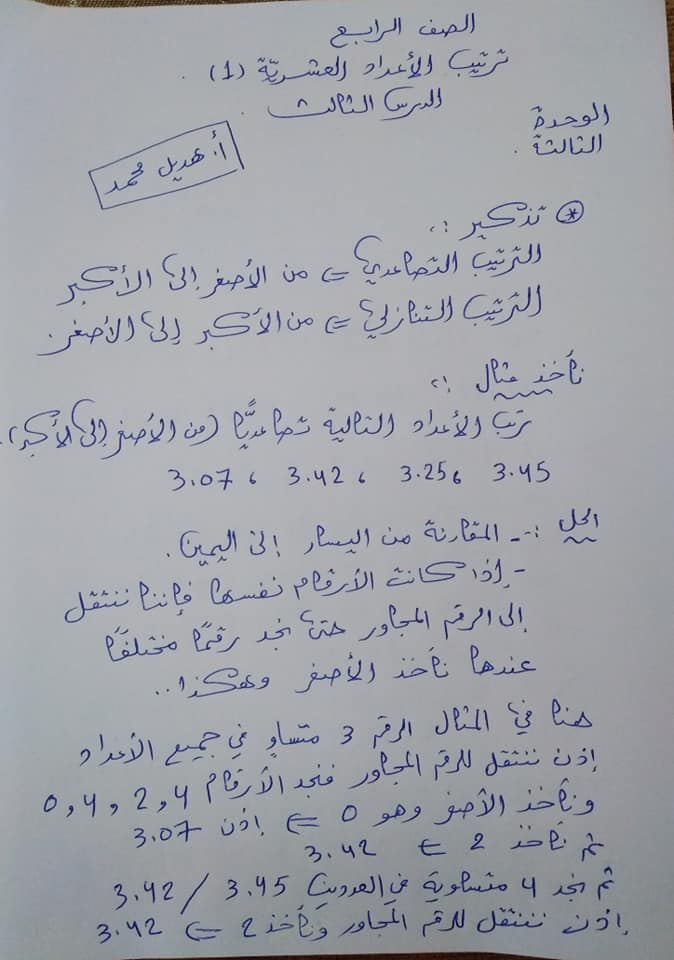 الصف الرابع
ترتيب الأعداد العشريّة (1) .
الدرس الثالث .
الوحدة
الثالثة .
أ. هديل محمد
* تذكير :،
الترتيب التصاعدي ⇐ من الأصغر إلى الأكبر
الترتيب التنازلي ⇐ من الأكبر إلى الأصغر.
نأخذ مثال :،
رتب الأعداد التالية تصاعديًّا (من الأصغر إلى الأكبر).
3.45 ، 3.25 ، 3.42 ، 3.07
الحل :- - المقارنة من اليسار إلى اليمين .
- إذا كانت الأرقام نفسها فإننا ننتقل
إلى الرقم المجاور حتى نجد رقمًا مختلفًا
عندها نأخذ الأصغر وهكذا ..
هنا في المثال الرقم 3 متساوٍ في جميع الأعداد
إذن ننتقل للرقم المجاور فنجد الأرقام 4 , 2 , 4 , 0
ونأخذ الأصغر وهو 0 ⇐ إذن 3.07
ثم نأخذ 2 ⇐ 3.42
ثم نجد 4 متساوية في العددين 3.45 / 3.42
إذن ننتقل للرقم المجاور ونأخذ 2 ⇐ 3.42